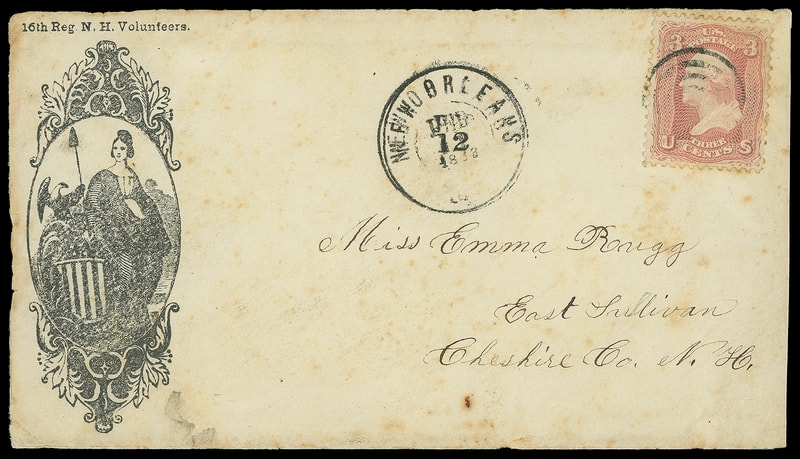 16th Reg. N. H. Volunteers.
3 U.S. POSTAGE 3
U THREE CENTS S
ORLEANS
12
Miss Emma Rugg
East Sullivan
Cheshire Co. N. H.